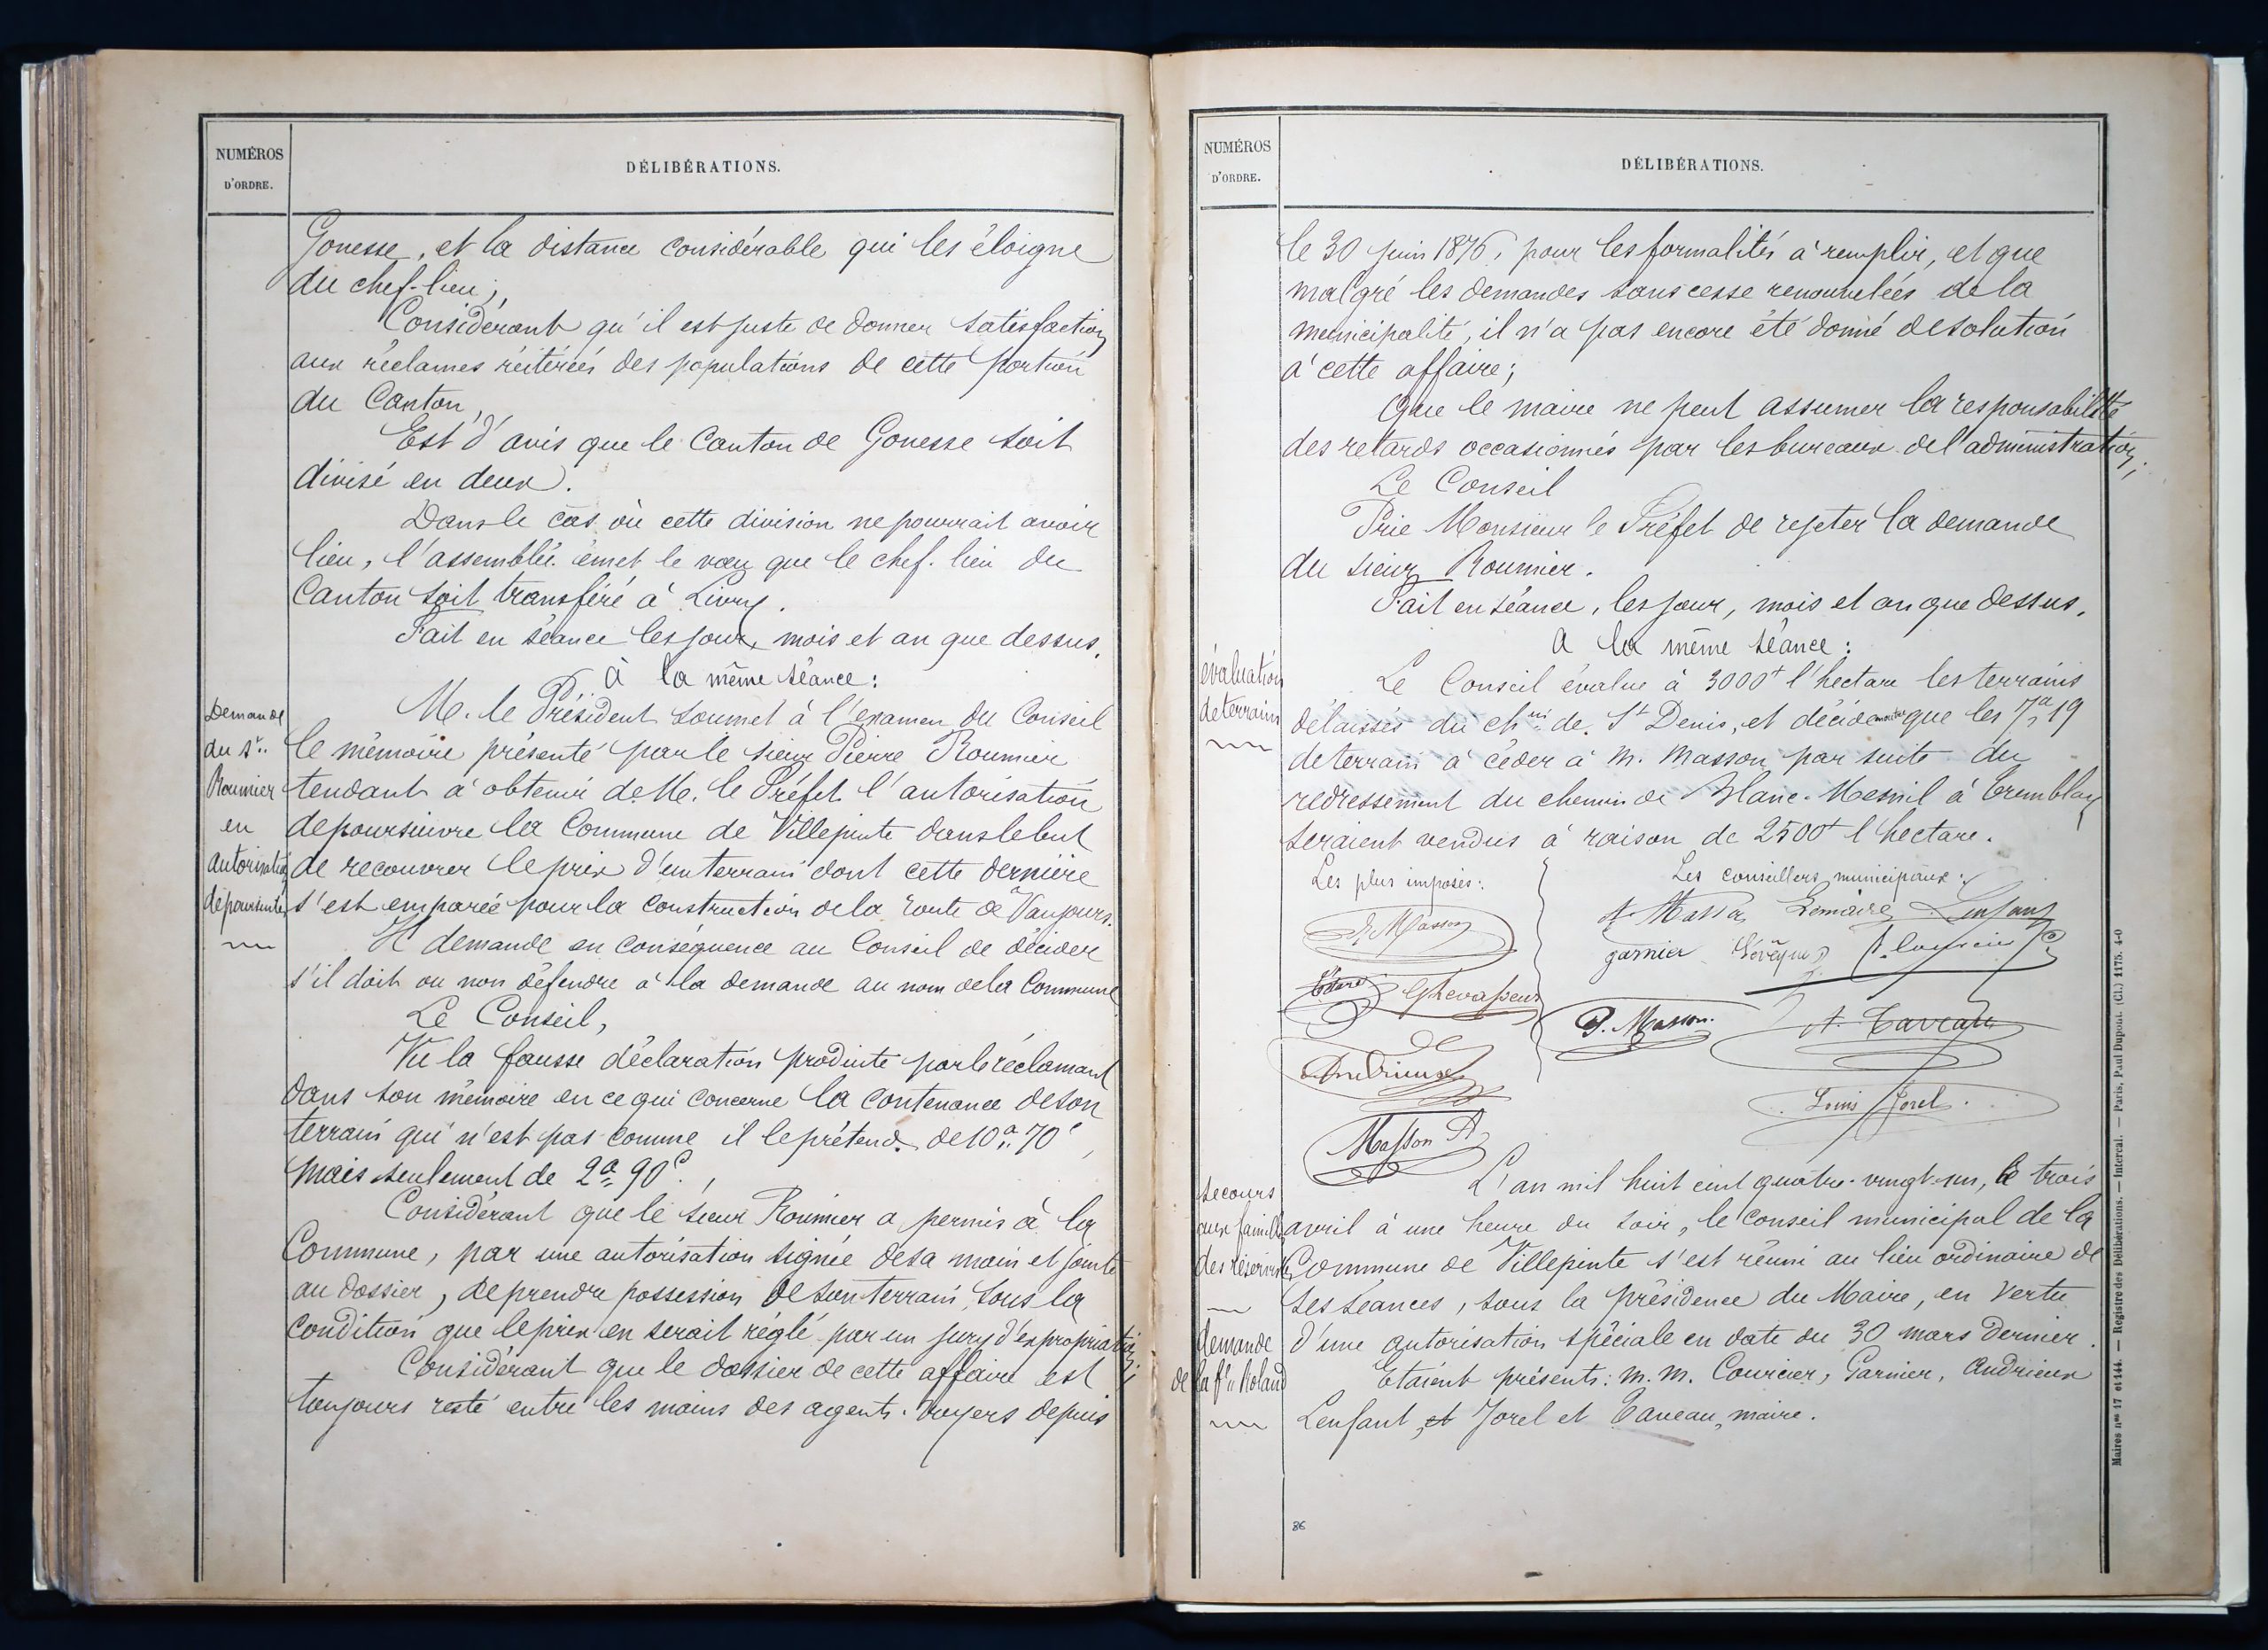 NUMÉROS
D'ORDRE.
DÉLIBÉRATIONS.
Gonesse, et la distance considérable qui les éloigne
du chef-lieu;
Considérant qu'il est juste de donner satisfaction
aux réclames réitérées des populations de cette portion
du Canton,
Est d'avis que le Canton de Gonesse soit
divisé en deux.
Dans le cas où cette division ne pourrait avoir
lieu, l'assemblée émet le vœu que le chef-lieu du
Canton soit transféré à Livry.
Fait en séance les jour, mois et an que dessus.
à la même séance:
Demande
du Sr.
Roumier
en
autorisation
de poursuites
M. le Président soumet à l'examen du Conseil
le mémoire présenté par le sieur Pierre Roumier
tendant à obtenir de M. le Préfet l'autorisation
de poursuivre la Commune de Villepinte dans le but
de recouvrer le prix d'un terrain dont cette dernière
s'est emparée pour la construction de la route de Vaujours.
Il demande en conséquence au Conseil de décider
s'il doit ou non défendre à la demande au nom de la Commune
Le Conseil,
Vu la fausse déclaration produite par le réclamant
dans son mémoire en ce qui concerne la contenance de son
terrain qui n'est pas comme il le prétend de 10a 70c,
mais seulement de 2a 90c;
Considérant que le sieur Roumier a permis à la
Commune, par une autorisation signée de sa main et jointe
au dossier, de prendre possession de son terrain, sous la
condition que le prix en serait réglé par un jury d'expropriation;
Considérant que le dossier de cette affaire est
toujours resté entre les mains des agents-voyers depuis
NUMÉROS
D'ORDRE.
DÉLIBÉRATIONS.
le 30 juin 1876, pour les formalités à remplir, et que
malgré les demandes sans cesse renouvelées de la
municipalité, il n'a pas encore été donné de solution
à cette affaire;
Que le maire ne peut assumer la responsabilité
des retards occasionnés par les bureaux de l'administration;
Le Conseil
Prie Monsieur le Préfet de rejeter la demande
du sieur Roumier.
Fait en séance, les jour, mois et an que dessus.
A la même séance:
évaluation
de terrains
Le Conseil évalue à 3000f l'hectare les terrains
délaissés du chin de St Denis, et décide que les 7a 19
de terrain à céder à M. Masson par suite du
redressement du chemin de Blanc-Mesnil à Tremblay
seraient vendus à raison de 2500f l'hectare.
Les plus imposés:
Les conseillers municipaux:
Masson
Lemaire
Lenfant
garnier
Lévêque
P. Masson.
A. Taveau
Andrieux
Louis Jorel
Masson A
secours
aux familles
des réservistes
demande
de la fe Roland
L'an mil huit cent quatre-vingt-un, le trois
avril à une heure du soir, le Conseil municipal de la
Commune de Villepinte s'est réuni au lieu ordinaire de
ses séances, sous la présidence du Maire, en vertu
d'une autorisation spéciale en date du 30 mars dernier.
Etaient présents: M.M. Courcier, Garnier, Andrieux
Lenfant, et Jorel et Taveau, maire.
86
Maires nos 17 et 144. — Registre des Délibérations. — Intercal. — Paris, Paul Dupont. (Cl.) 1175. 4-0